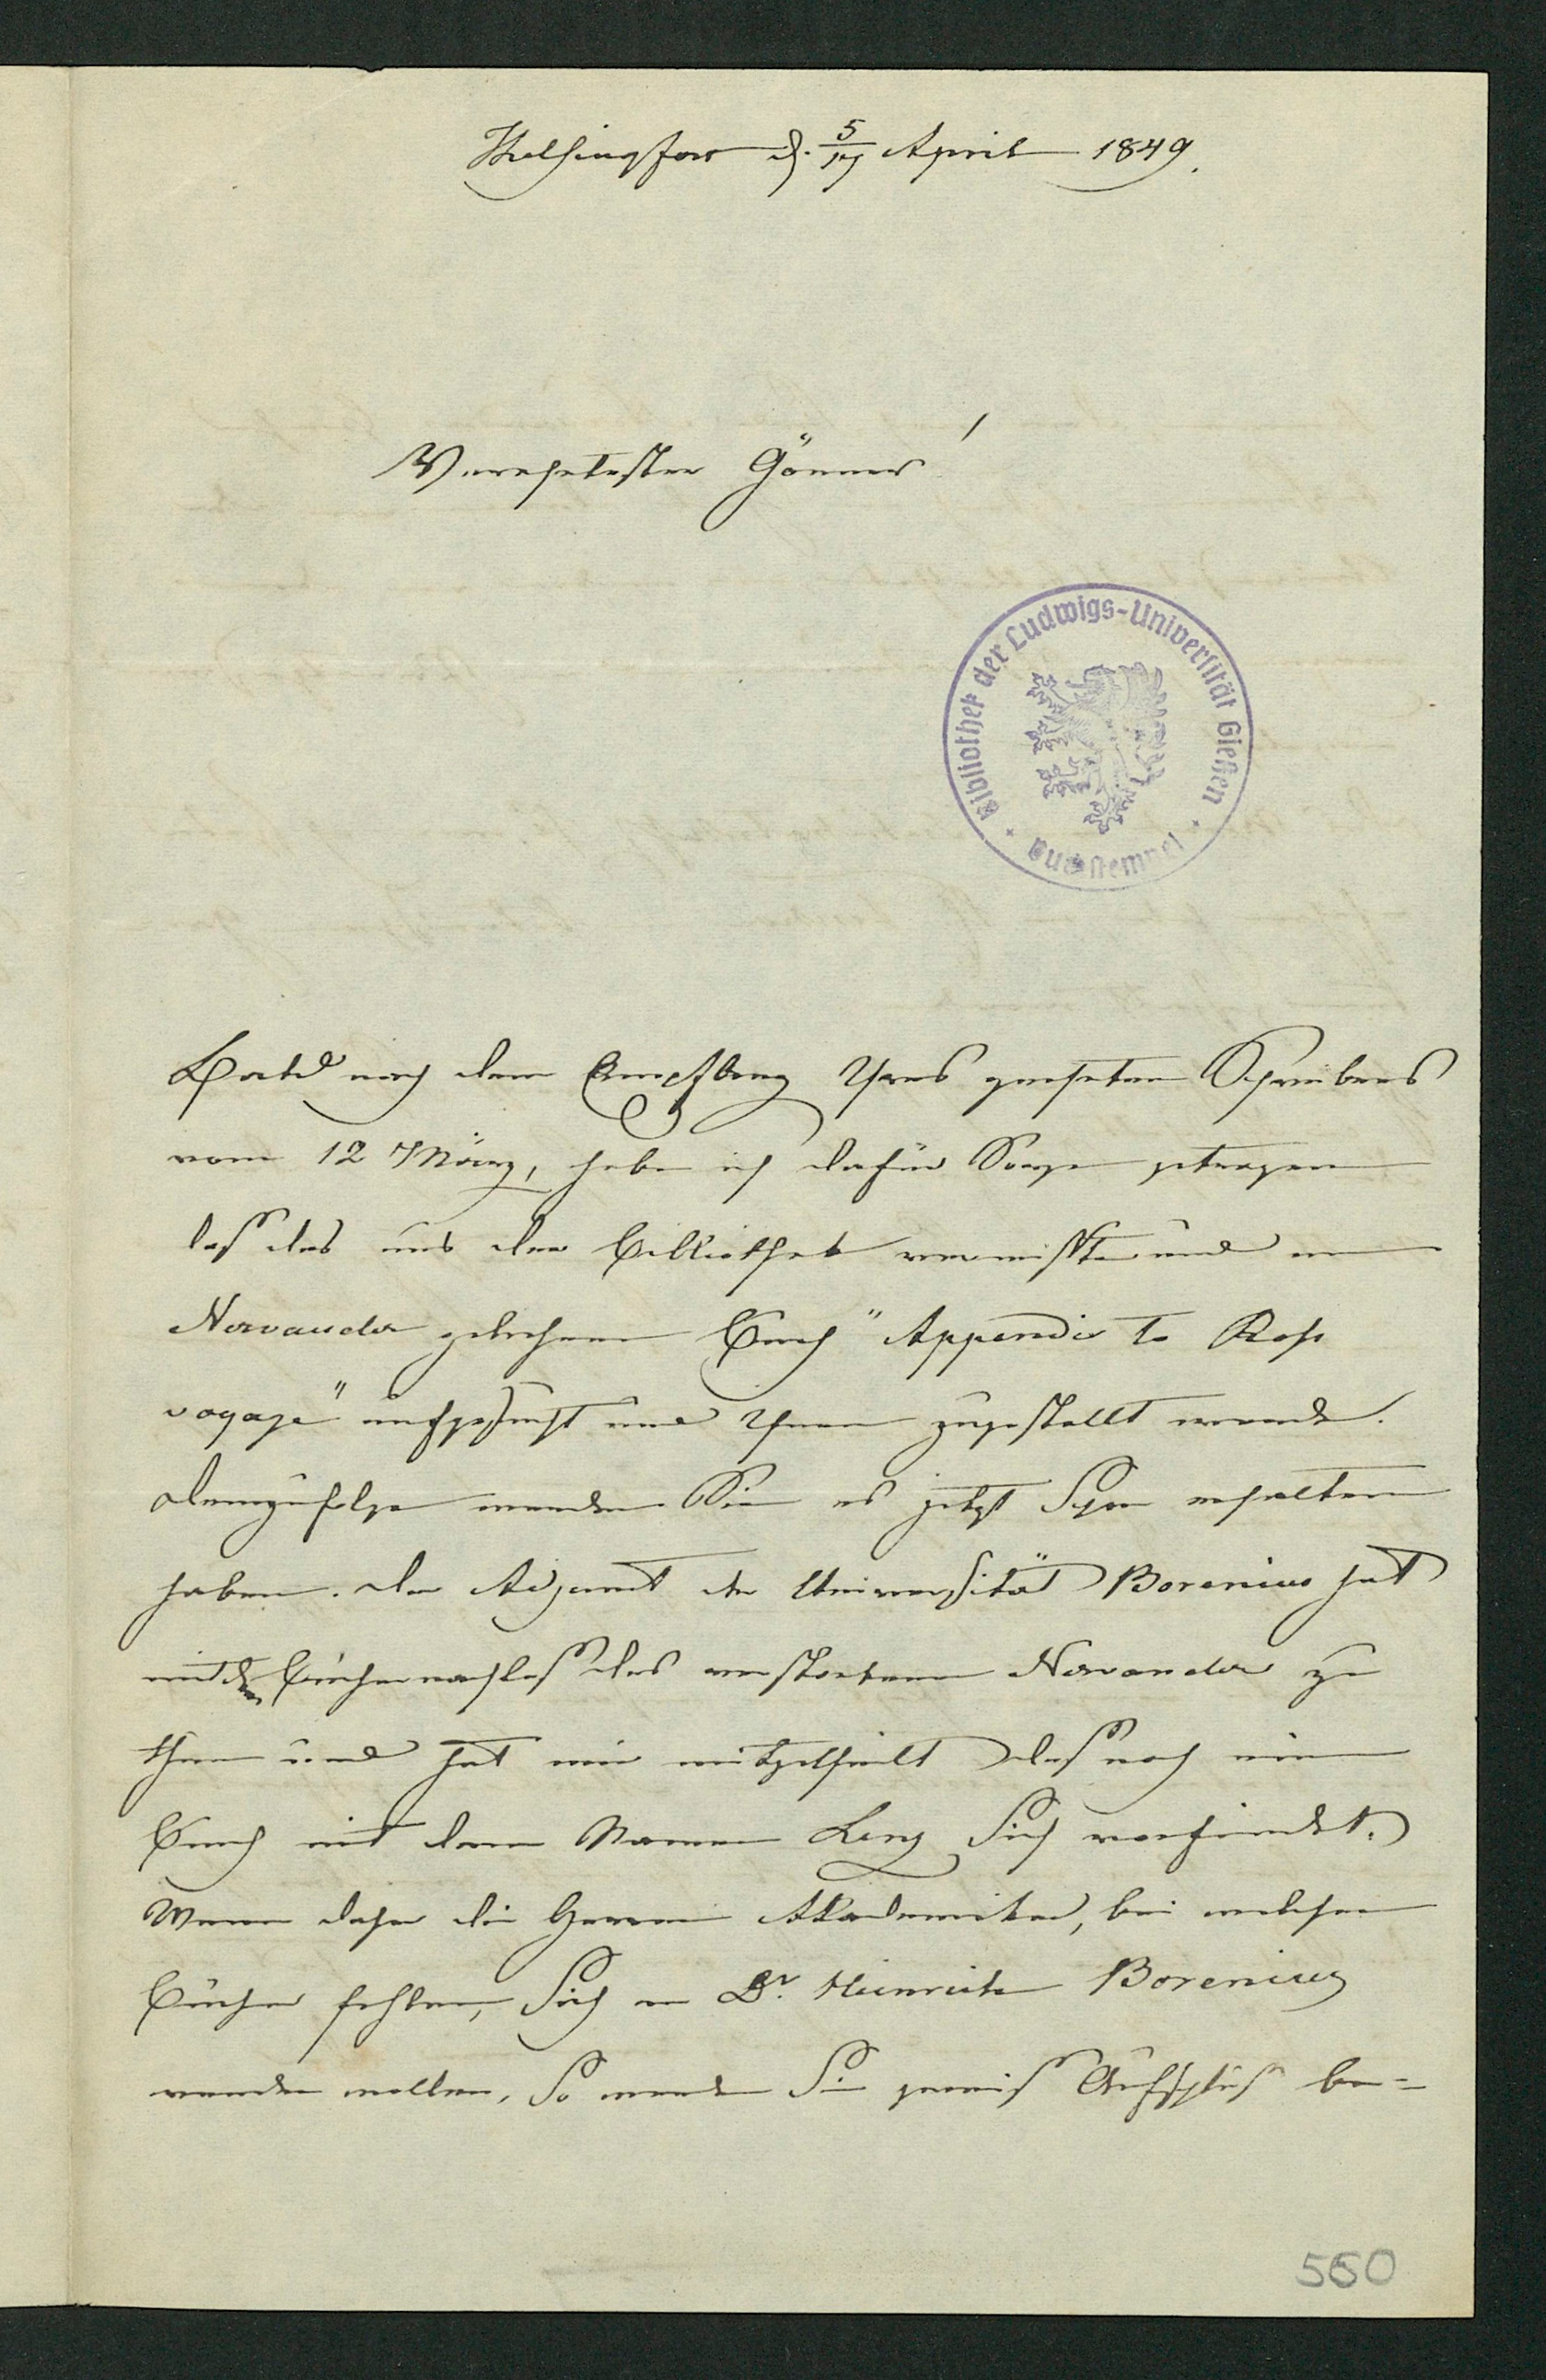 Helsingfors d. 5/17 April 1849.
Verehrtester Gönner!
Bibliothek der Ludwigs-Universität Gießen
Buchstempel
Bald nach dem Empfang Ihres geehrten Schreibens
vom 12 März, habe ich dafür Sorge getragen
daß das aus der Bibliothek vermißte und an
Nervander geliehene Buch "Appendix to Ross
voyage" aufgesucht und Ihnen zugestellt werde.
Demzufolge werden Sie es jetzt schon erhalten
haben. Der Adjunct der Universität Borenius hat
mit dem Büchernachlaß des verstorbenen Nervander zu
thun und hat mir mitgetheilt daß noch ein
Buch mit dem Namen Lenz sich vorfindet.
Wenn daher die Herren Akademiker, bei welchen
Bücher fehlen, sich an Dr. Heinrich Borenius
wenden wollten, so werden Sie gewiß Aufschluß be-
560